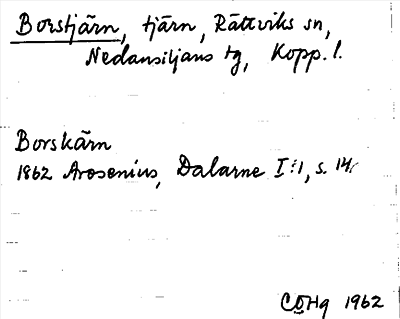 Borstjärn, tjärn, Rättviks sn,
Nedansiljans tg, Kopp. l.
Borskärn
1862 Arosenius, Dalarne I:1, s. 14
CÖHg 1962